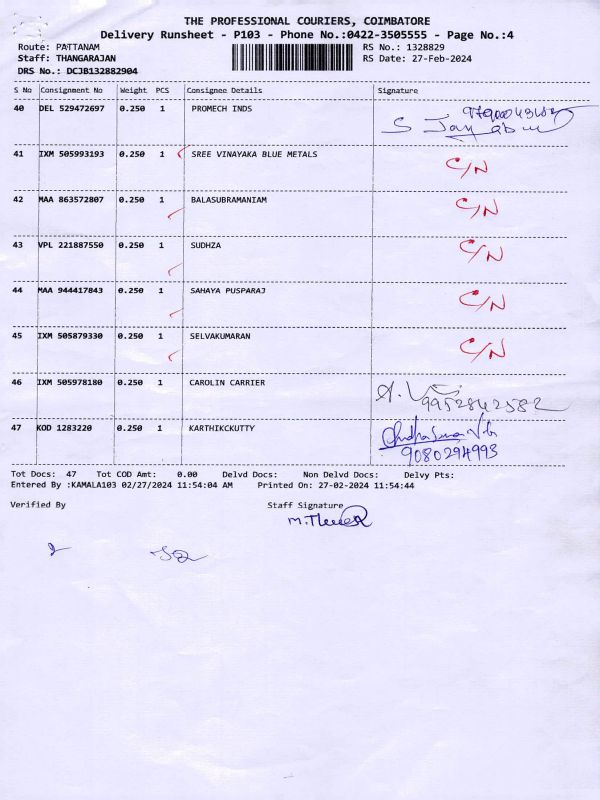 THE PROFESSIONAL COURIERS, COIMBATORE
Delivery Runsheet - P103 - Phone No.:0422-3505555 - Page No.:4
Route: PATTANAM RS No.: 1328829
Staff: THANGARAJAN RS Date: 27-Feb-2024
DRS No.: DCJB132882904
S No Consignment No Weight PCS Consignee Details Signature
40 DEL 529472697 0.250 1 PROMECH INDS
41 IXM 505993193 0.250 1 SREE VINAYAKA BLUE METALS C/N
42 MAA 863572807 0.250 1 BALASUBRAMANIAM C/N
43 VPL 221887550 0.250 1 SUDHZA C/N
44 MAA 944417843 0.250 1 SAHAYA PUSPARAJ C/N
45 IXM 505879330 0.250 1 SELVAKUMARAN C/N
46 IXM 505978180 0.250 1 CAROLIN CARRIER 9952842582
47 KOD 1283220 0.250 1 KARTHIKCKUTTY
9080294993
Tot Docs: 47 Tot COD Amt: 0.00 Delvd Docs: Non Delvd Docs: Delvy Pts:
Entered By :KAMALA103 02/27/2024 11:54:04 AM Printed On: 27-02-2024 11:54:44
Verified By Staff Signature